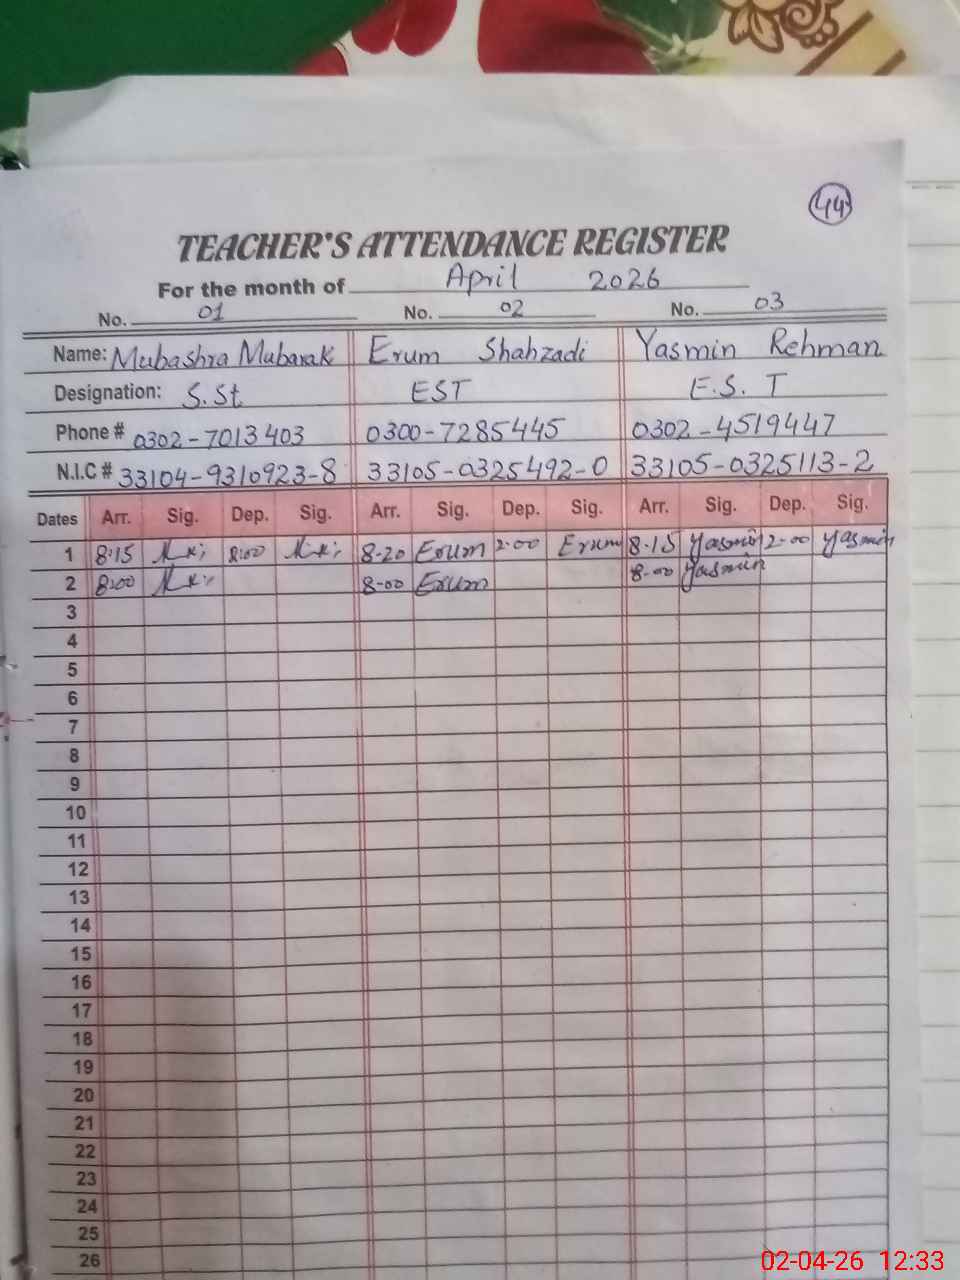 44
TEACHER'S ATTENDANCE REGISTER
For the month of April 2026
No. 01 No. 02 No. 03
Name: Mubashra Mubarak Erum Shahzadi Yasmin Rehman
Designation: S.St EST E.S.T
Phone # 0302-7013403 0300-7285445 0302-4519447
N.I.C # 33104-9310923-8 33105-0325492-0 33105-0325113-2
Dates Arr. Sig. Dep. Sig. Arr. Sig. Dep. Sig. Arr. Sig. Dep. Sig.
1 8:15 8:20 Erum 2:00 Erum 8-15 Yasmin 2-00 Yasmin
2 8:00 8-00 Erum 8-00 Yasmin
3
4
5
6
7
8
9
10
11
12
13
14
15
16
17
18
19
20
21
22
23
24
25
26
02-04-26 12:33